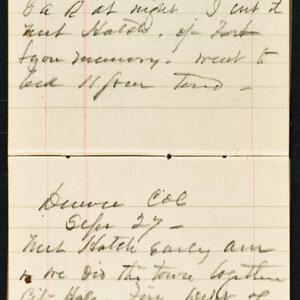 G a R at night I cut t
met Hatch. of Fort
Lyon memory. went to
bed 11 four tired.
Denver Col
Sept 27-
Met Hatch early am
n we did the town together
City Hall Fire Dept